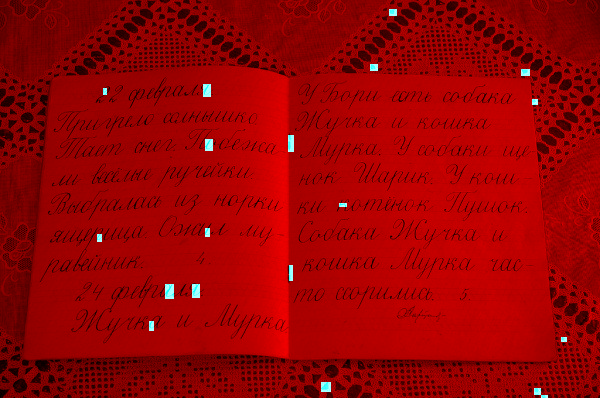 22 февраля
Пригрело солнышко.
Тает снег. Побежа-
ли весёлые ручейки.
Выбралась из норки
ящерица. Ожил му-
равейник. 4.
24 февраля
Жучка и Мурка.
У Бори есть собака
Жучка и кошка
Мурка. У собаки ще-
нок Шарик. У кош-
ки котёнок Пушок.
Собака Жучка и
кошка Мурка час-
то ссорились. 5.